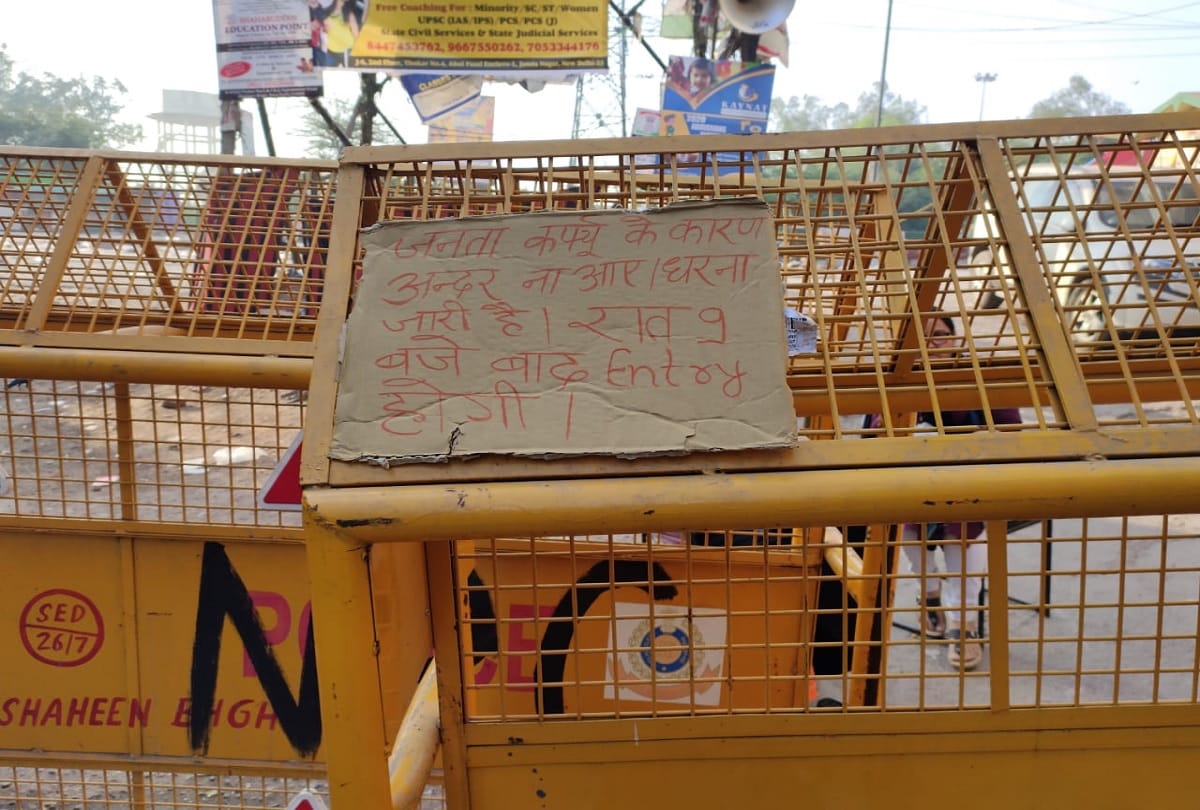 SHAHABUDDIN
EDUCATION POINT
Free Coaching For : Minority/SC/ST/Women
UPSC (IAS/IPS) /PCS/PCS (J)
State Civil Services & State Judicial Services
8447453762, 9667550262, 7053344176
KAYNAT
2020
जनता कर्फ्यू के कारण
अन्दर ना आए। धरना
जारी है। रात 9
बजे बाद Entry
होगी।
SED
26/7
SHAHEEN BHGH
N
C